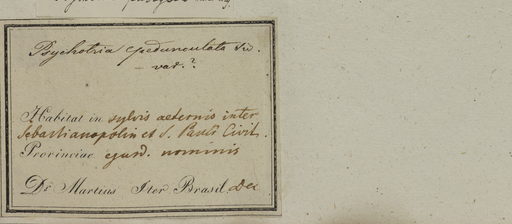 Psychotria epedunculata Sw.
- var.?
Habitat in sylvis aeternis inter
Sebastianopolin et S. Pauli Civit.
Provinciae ejusd. nominis
Dr. Martius Iter Brasil. Dec